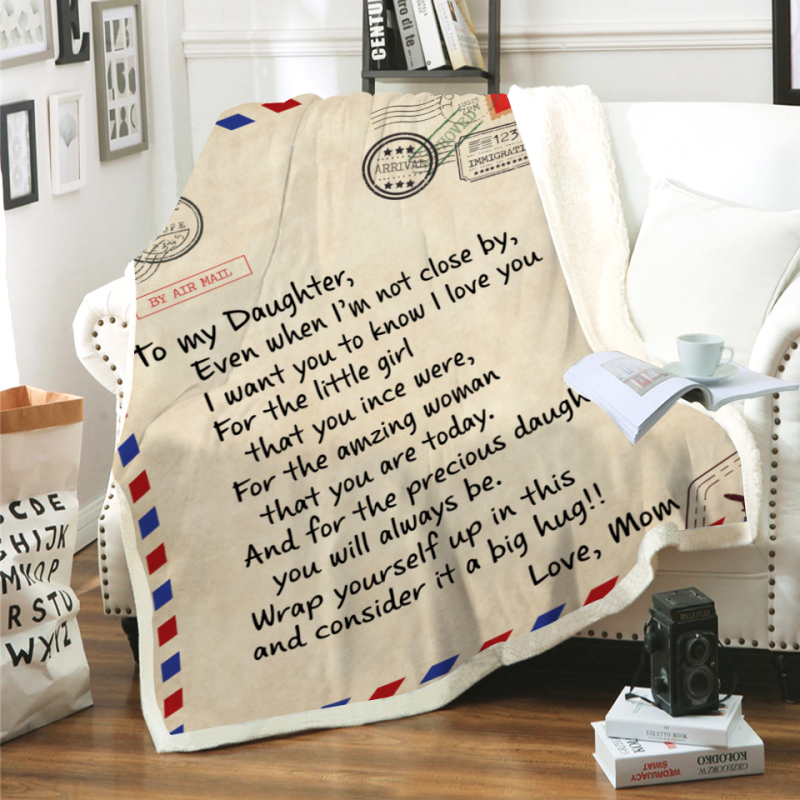 E
CENTU
tro di te
ARRIVAL
123
IMMIGRATI
BY AIR MAIL
To my Daughter,
Even when I'm not close by,
I want you to know I love you
For the little girl
that you ince were,
For the amzing woman
that you are today.
And for the precious daugh
you will always be.
Wrap yourself up in this
and consider it a big hug!!
Love, Mom
CDE
HIJK
RSTU
WXYZ
ROLLEIFLEX
GRZEGORZ KOŁODKO
WĘDRUJĄCY
ŚWIAT